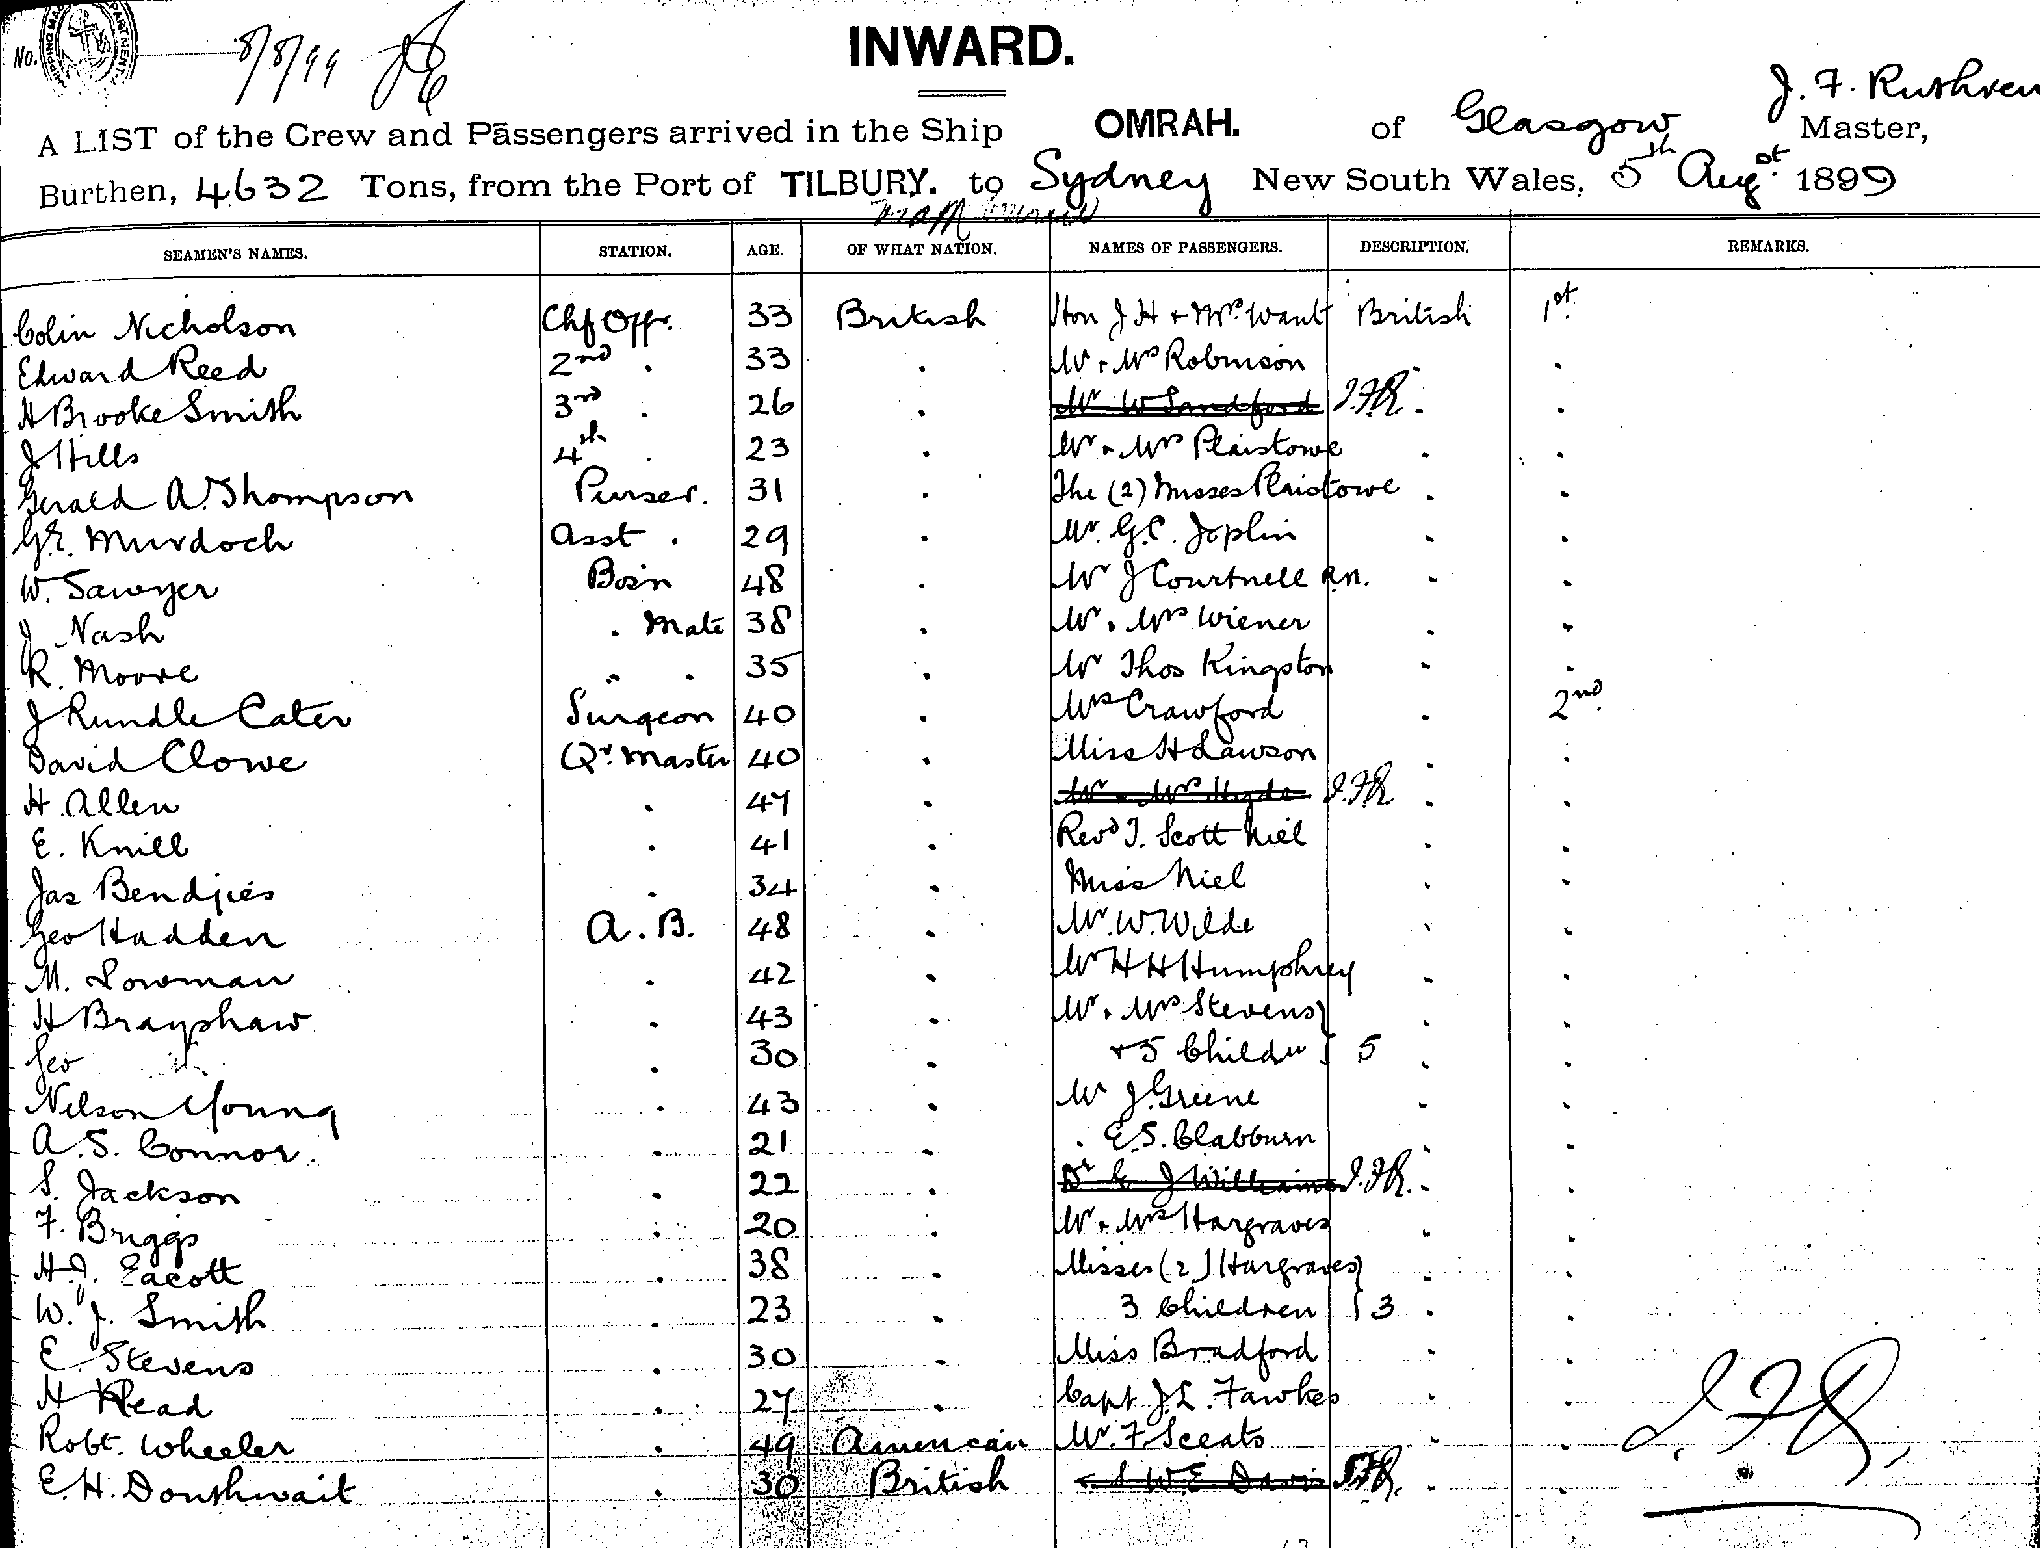 No. 8/8/99
INWARD.
J. F. Ruthven
A LIST of the Crew and Passengers arrived in the Ship OMRAH. of Glasgow Master,
Burthen, 4632 Tons, from the Port of TILBURY. to Sydney New South Wales, 5th Augst 1899
SEAMEN'S NAMES. STATION. AGE. OF WHAT NATION. NAMES OF PASSENGERS. DESCRIPTION. REMARKS.
Colin Nicholson Chf Offr. 33 British Hon J H + Mrs Want British 1st
Edward Reed 2nd . 33 . Mr + Mrs Robinson . .
H Brooke Smith 3rd . 26 . Mr W Sandford J.F.R. . .
J Hills 4th . 23 . Mr + Mrs Plaistowe . .
Gerald A. Thompson Purser. 31 . The (2) Misses Plaistowe . .
G.E. Murdoch Asst . 29 . Mr. G.C. Joplin . .
W. Sawyer Bosn 48 . Mr J Courtnell R.N. . .
J. Nash . Mate 38 . Mr + Mrs Wiener . .
R. Moore . . 35 . Mr Thos Kingston . .
J Rundle Cater Surgeon 40 . Mrs Crawford . 2nd
David Clowe Qr. Master 40 . Miss H Lawson . .
H. Allen . 47 . Mr + Mrs Hyde J.F.R . .
E. Knill . 41 . Revd J. Scott Niel . .
Jas Bendjies . 34 . Miss Niel . .
Geo Hadden A.B. 48 . Mr. W. Wilde . .
M. Lowman . 42 . Mr H H Humphrey . .
H Brayshaw . 43 . Mr + Mrs Stevens . .
Geo . 30 . + 5 Childn 5 . .
Nelson Young . 43 . Mr J. Greene . .
A. S. Connor. . 21 . . E.S. Clabburn . .
S. Jackson . 22 . Dr J Williams J.F.R. . .
F. Briggs . 20 . Mr + Mrs Hargraves . .
H.J. Eacott . 38 . Misses (2) Hargraves . .
W. J. Smith . 23 . 3 Children 3 . .
E Stevens . 30 . Miss Bradford . .
H Read . 27 . Capt J.L. Fawkes . .
Robt. Wheeler . 49 American Mr. F Sceats . .
E. H. Douthwait . 30 British W E Davis J.F.R. . .
J.F.R.